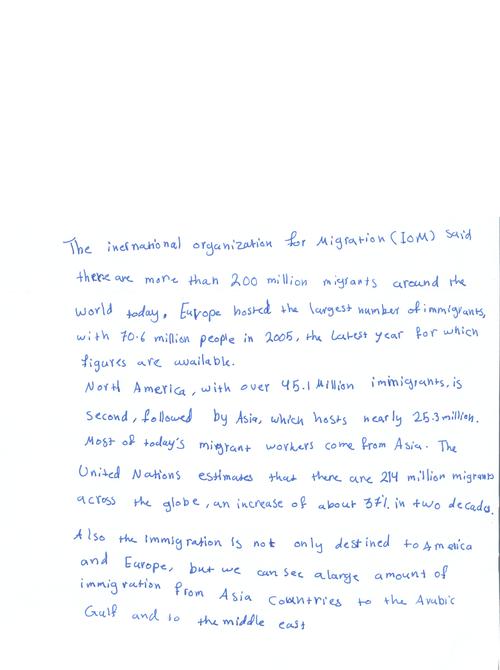 The inernational organization for Migration (IOM) said
there are more than 200 million migrants around the
world today. Europe hosted the largest number of immigrants,
with 70.6 million people in 2005, the latest year for which
figures are available.
North America, with over 45.1 Million immigrants, is
second, followed by Asia, which hosts nearly 25.3 million.
Most of today's migrant workers come from Asia. The
United Nations estimates that there are 214 million migrants
across the globe, an increase of about 37% in two decads.
Also the immigration is not only destined to America
and Europe, but we can see a large amount of
immigration from Asia Countries to the Arabic
Gulf and to the middle east